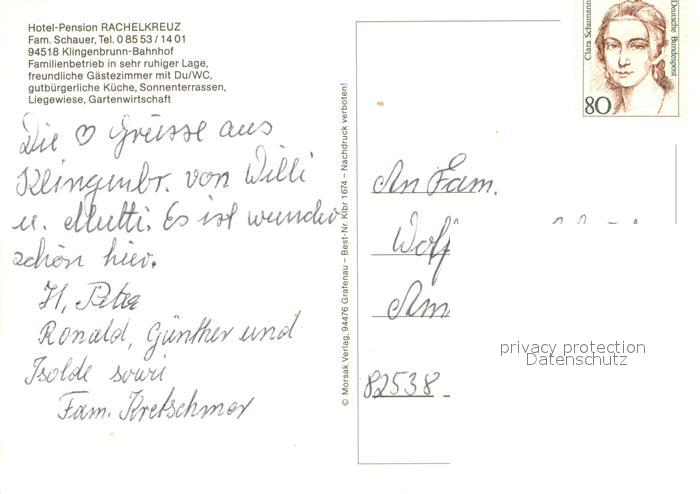 Hotel-Pension RACHELKREUZ
Fam. Schauer, Tel. 0 85 53 / 14 01
94518 Klingenbrunn-Bahnhof
Familienbetrieb in sehr ruhiger Lage,
freundliche Gästezimmer mit Du/WC,
gutbürgerliche Küche, Sonnenterrassen,
Liegewiese, Gartenwirtschaft
Die ♡ Grüsse aus
Klingenbr. von Willi
u. Mutti. Es ist wunder
schön hier.
Peter
Ronald, Günther und
Isolde sowie
Fam. Kretschmer
© Morsak Verlag, 94476 Grafenau – Best-Nr. Klbr 1674 – Nachdruck verboten!
Clara Schumann
Deutsche Bundespost
80
An Fam.
Wolf
Am
82538
privacy protection
Datenschutz